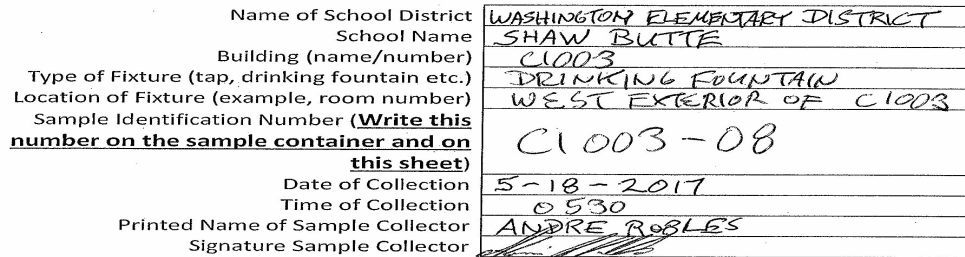 Name of School District WASHINGTON ELEMENTARY DISTRICT
School Name SHAW BUTTE
Building (name/number) C1003
Type of Fixture (tap, drinking fountain etc.) DRINKING FOUNTAIN
Location of Fixture (example, room number) WEST EXTERIOR OF C1003
Sample Identification Number (Write this
number on the sample container and on C1003-08
this sheet)
Date of Collection 5-18-2017
Time of Collection 0530
Printed Name of Sample Collector ANDRE ROBLES
Signature Sample Collector